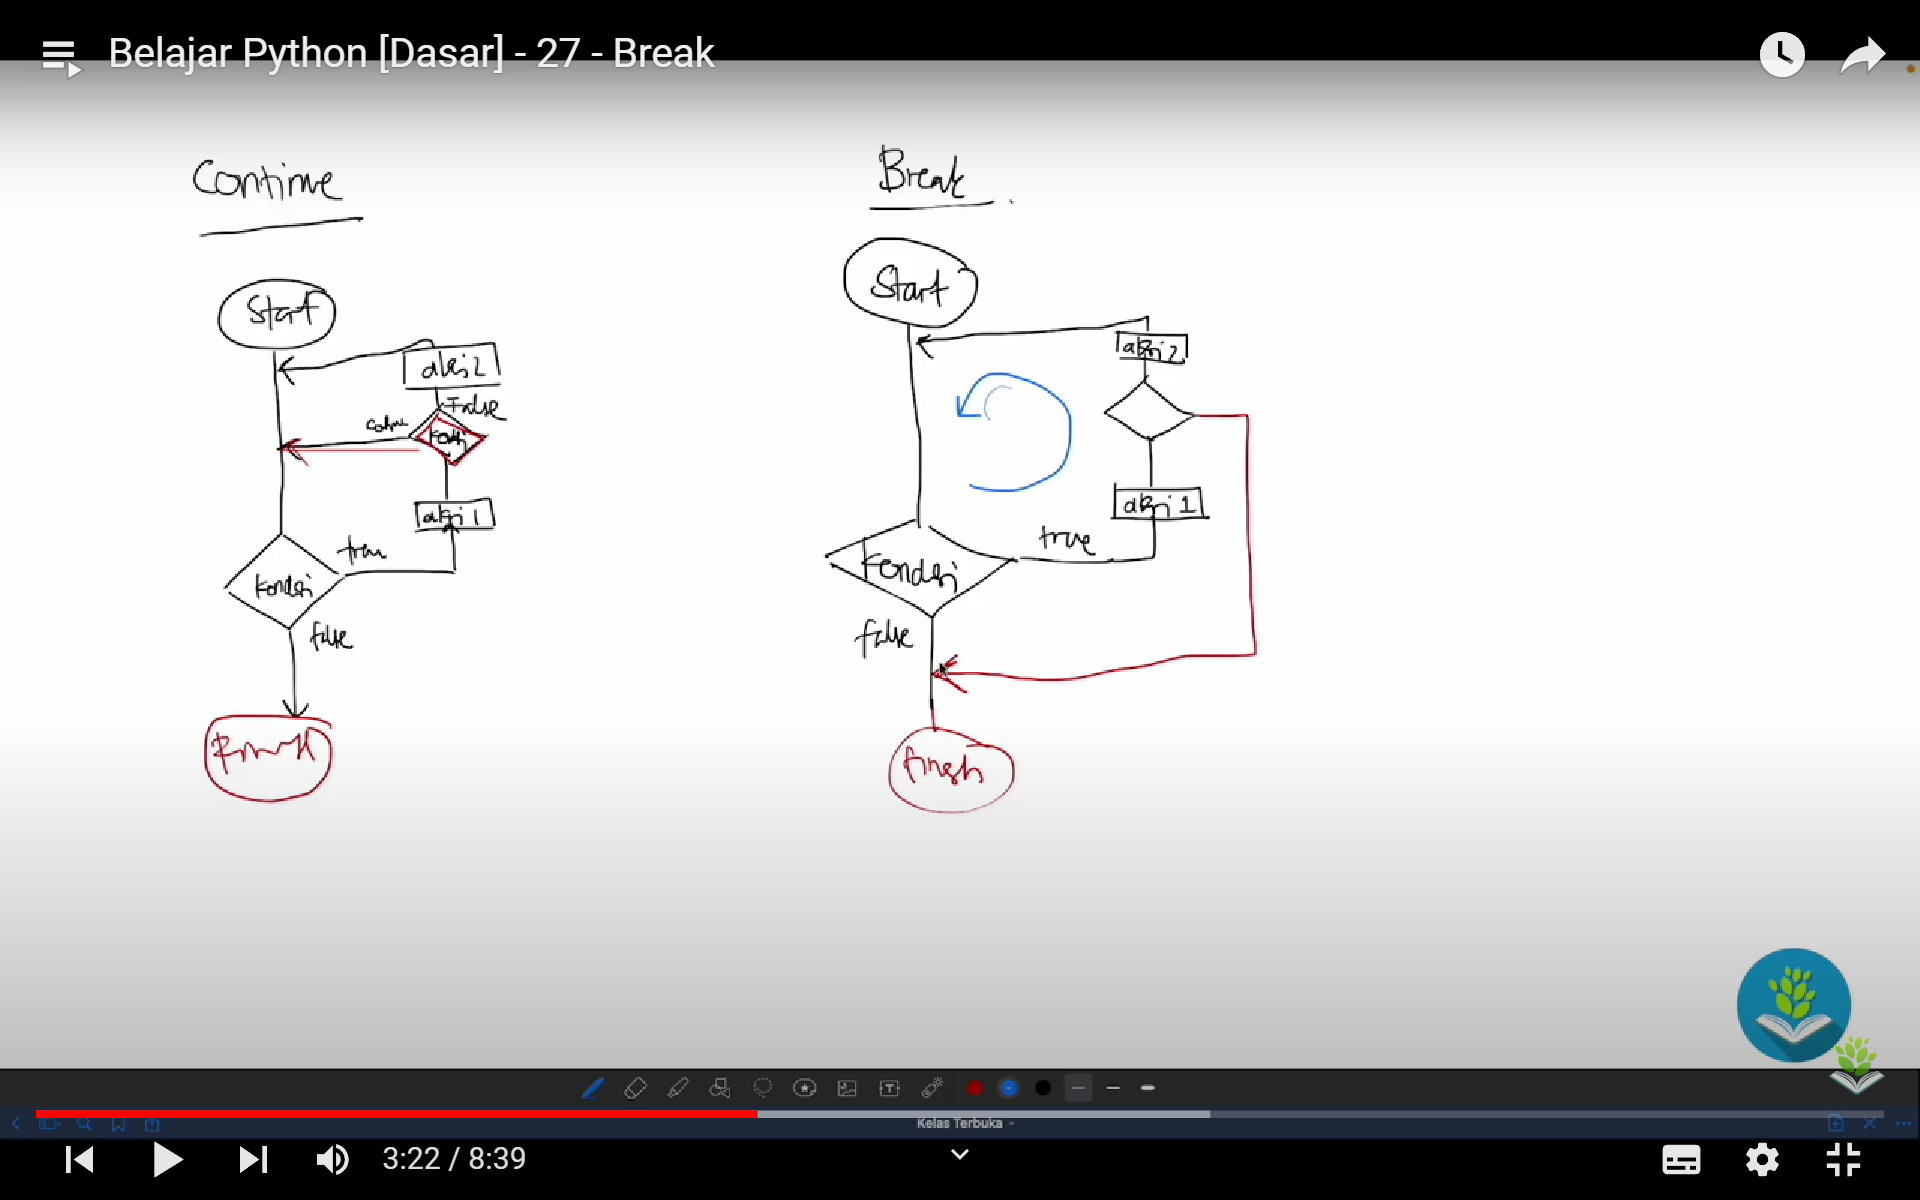 Belajar Python [Dasar] - 27 - Break
Continue
Start
aksi 2
False
aksi 1
true
Kondisi
false
Break
Start
aksi 2
aksi 1
true
Kondisi
false
finish
Kelas Terbuka
3:22 / 8:39